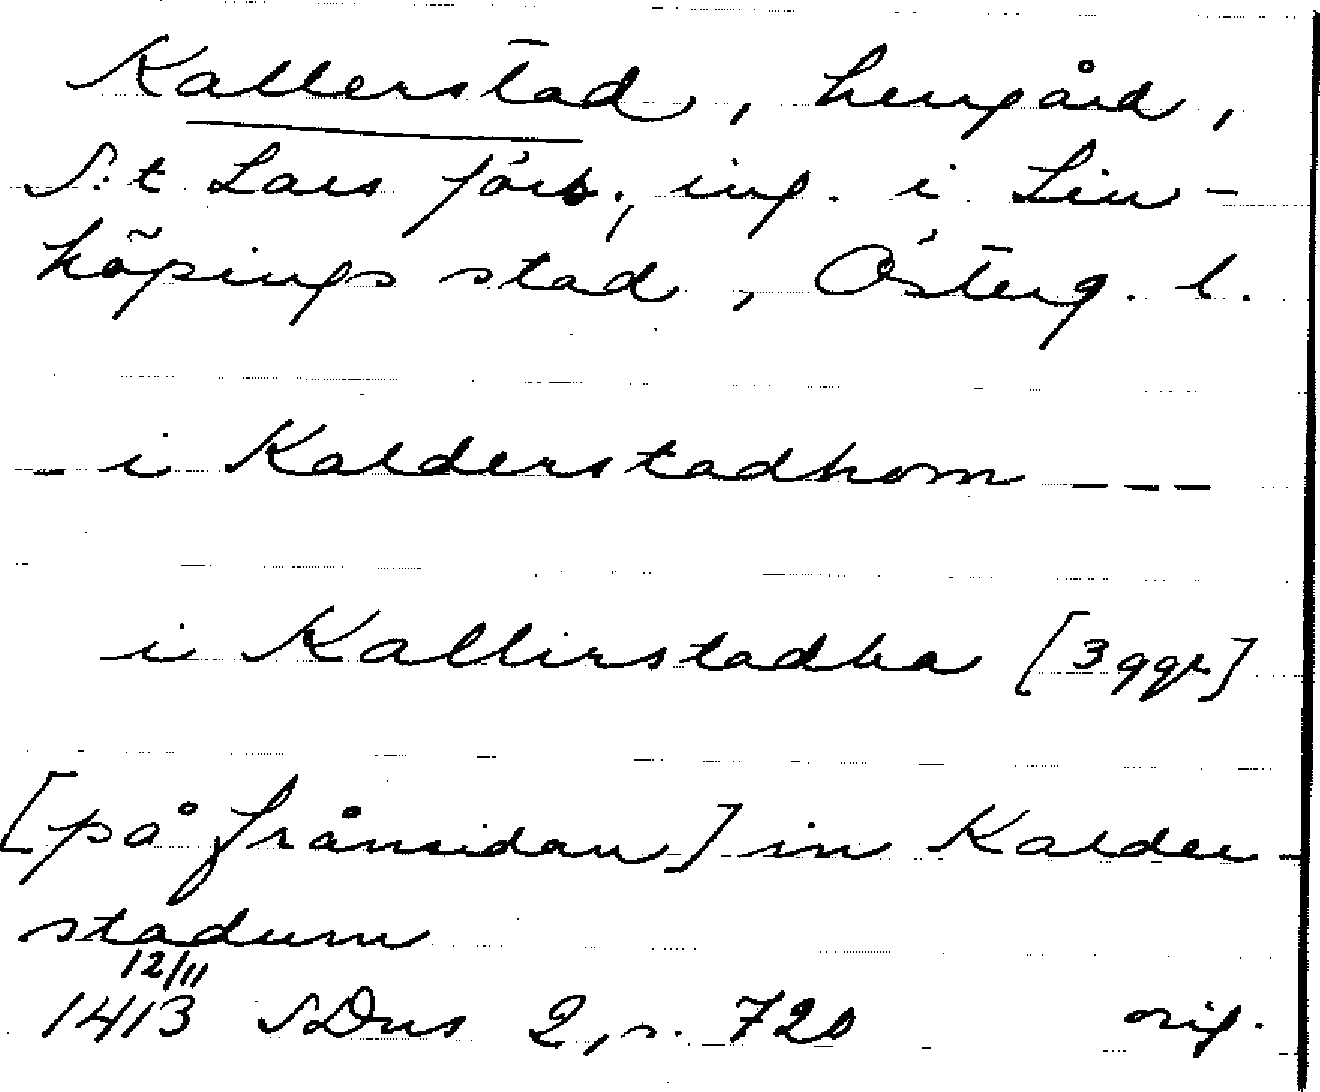 Kallerstad, herrgård,
S:t Lars förs., ing. i Lin-
köpings stad, Österg. l.
- i Kalderstadhom ---
i Kallirstadha [3 ggr]
[på frånsidan] in Kalder-
stadum
12/11
1413 SDns 2, s. 720 orig.